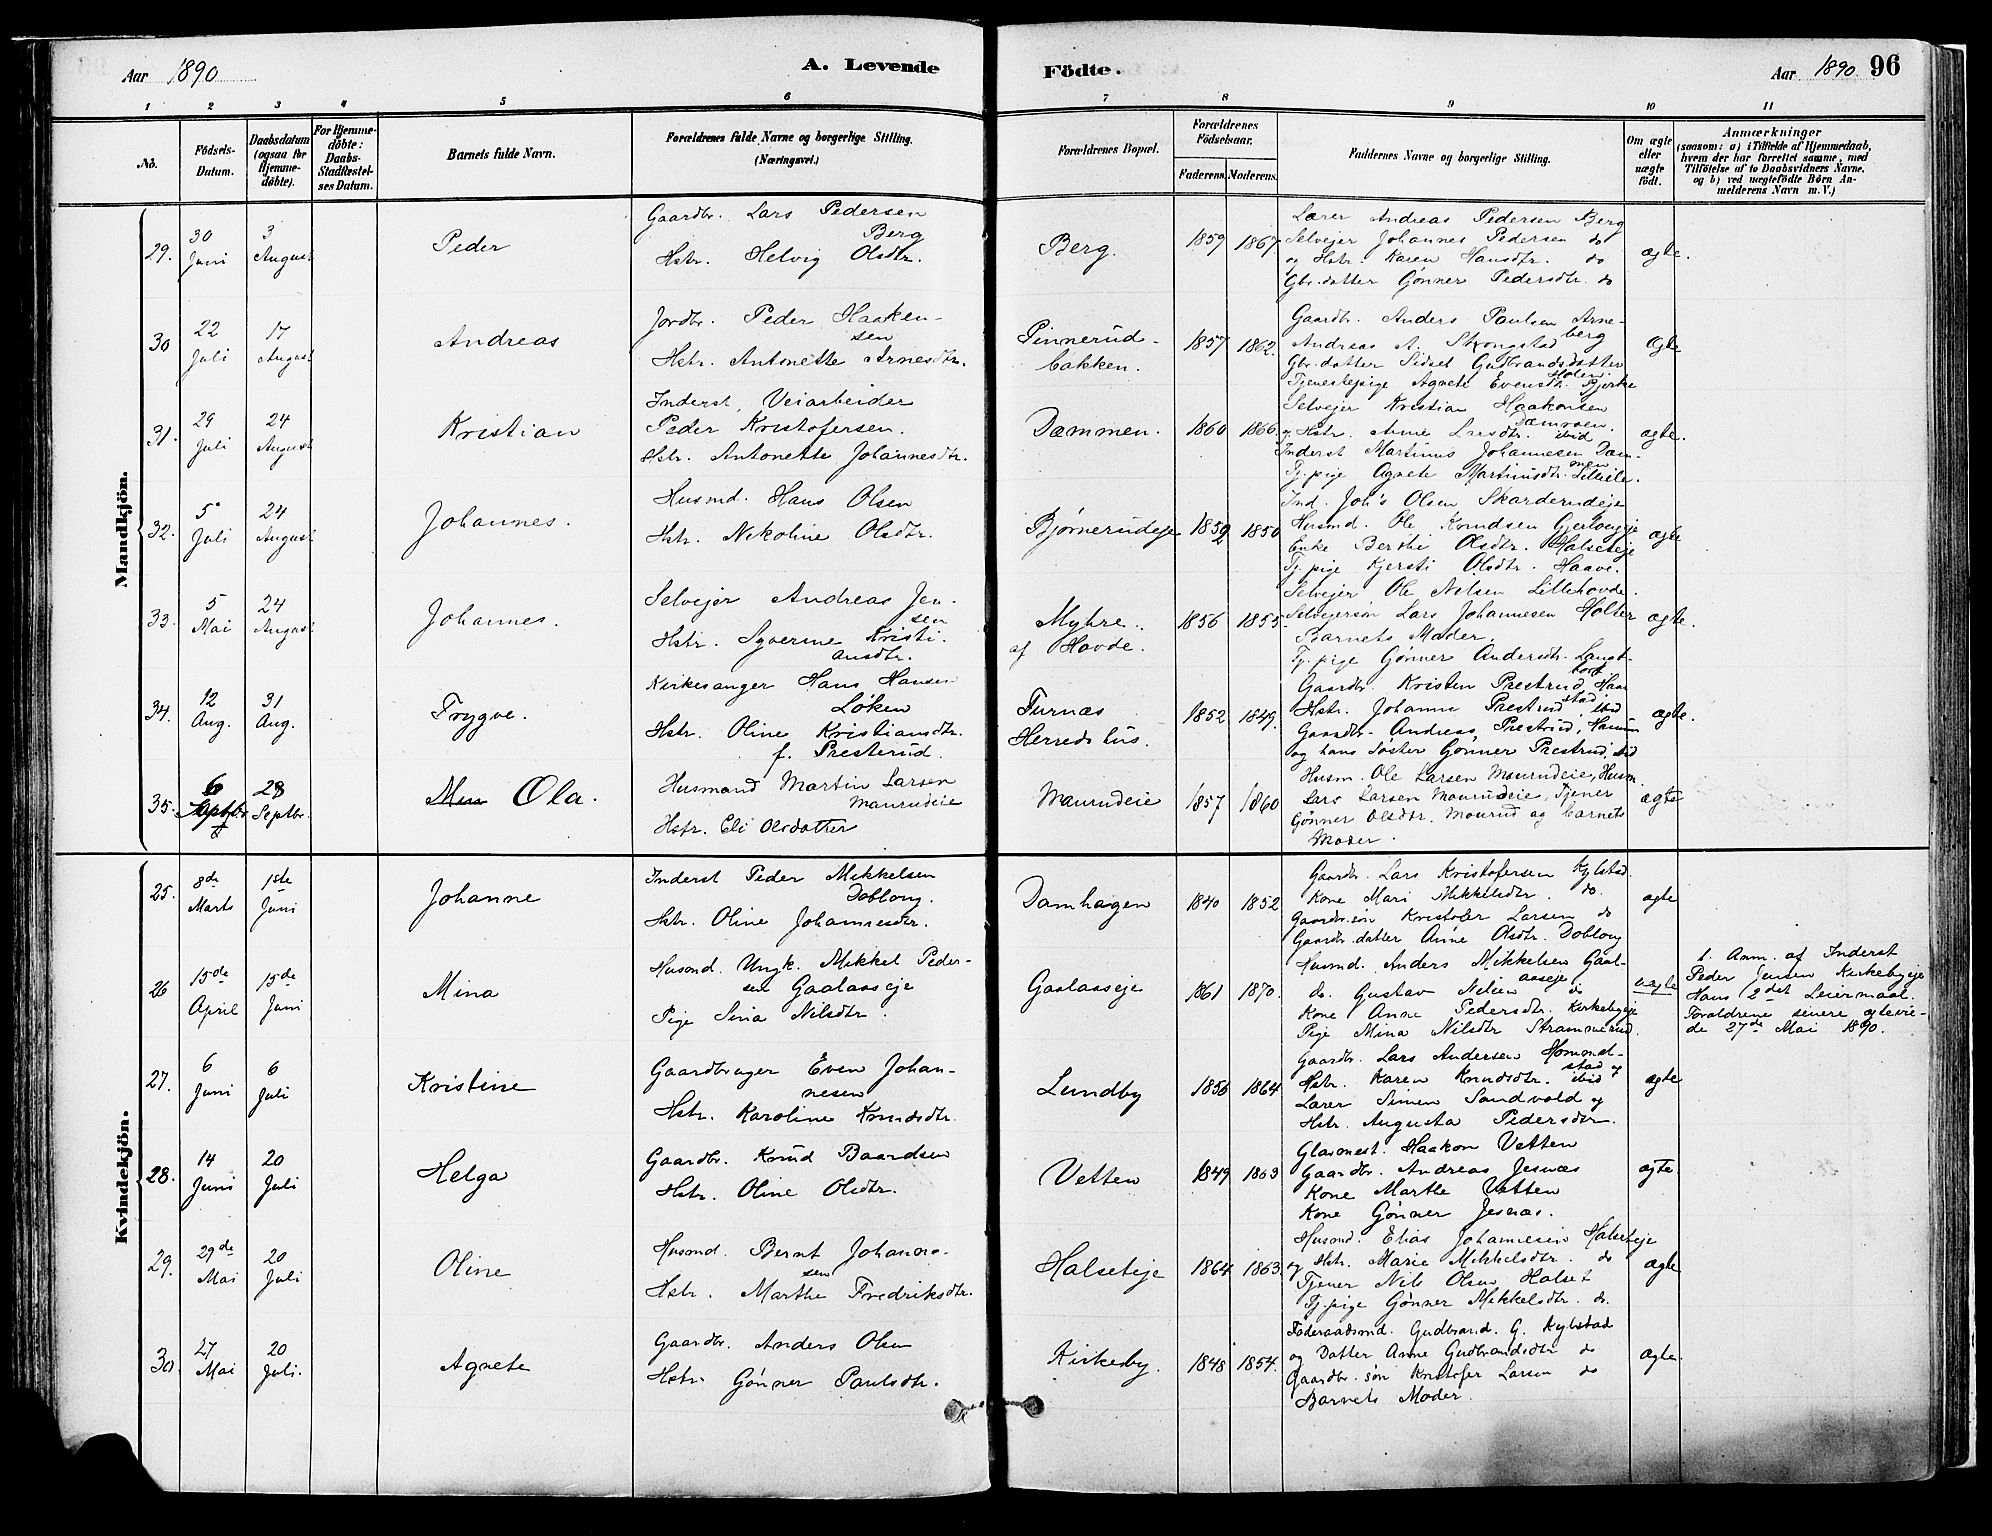 Aar 1890
A. Levende
Födte.
Aar 1890 96
1 2 3 4 5 6 7 8 9 10 11
No.
Födsels-
Datum.
Daabsdatum
(ogsaa for
Hjemme-
döbte).
For Hjemme-
döbte:
Daabs-
Stadfæstel-
ses Datum.
Barnets fulde Navn.
Forældrenes fulde Navne og borgerlige Stilling.
(Næringsvei.)
Forældrenes Bopæl.
Forældrenes
Födselsaar.
Faderens. Moderens.
Faddernes Navne og borgerlige Stilling.
Om ægte
eller
uægte
födt.
Anmærkninger
(saasom: a) i Tilfælde af Hjemmedaab,
hvem der har forrettet samme, med
Tilföielse af to Daabsvidners Navne,
og b) ved uægtefödte Börn An-
melderens Navn m. V.)
Mandkjön.
29. 30 Juni 3 August Peder
Gaardbr. Lars Pedersen
Berg
Hstr. Helvig Olsdtr.
Berg. 1859 1867
Lærer Andreas Pedersen Berg
Selvejer Johannes Pedersen do
og Hstr. Karen Hansdtr. do
Gbr.datter Gønner Pedersdtr. do
ægte.
30 22 Juli 17 August Andreas
Jordbr. Peder Haaken-
sen
Hstr. Antonette Arnesdtr.
Pinnerud-
bakken. 1857 1862.
Gaardbr. Anders Paulsen Arne-
berg
Andreas A. Skongstad
Gbr.datter Sidsel Gudbrandsdatter
Holen.
Tjenestepige Agnete Evensdtr. Bjerke
ægte
31. 29 Juli 24 August Kristian
Inderst, Veiarbeider
Peder Kristofersen.
Hstr. Antonette Johannesdtr.
Dammen. 1860 1866.
Selvejer Kristian Haakonsen
Damroen.
og Hstr. Anne Larsdtr. ibid
Inderst Martinus Johannesen Dam-
men
Tj.pige Agnete Martinusdtr. Lillele.
ægte.
32. 5 Juli 24 August Johannes.
Husmd. Hans Olsen
Hstr. Nikoline Olsdtr.
Bjørnerudeje 1852 1850
Ind. Joh's Olsen Skarderudeje
Husmd. Ole Knudsen
Enke Berthe Olsdtr. Halseteje
Tj.pige Kjersti Olsdtr. Haave.
ægte
33. 5 Mai 24 August Johannes.
Selvejer Andreas Jen-
sen
Hstr. Syverine Kristi-
ansdtr.
Myhre
af Hovde. 1856 1855-
Selvejer Ole Nilsen Lillehovde.
Selvejersøn Lars Johannesen Holter
Barnets Moder.
Tj.pige Gønner Andersdtr.
ægte.
34. 12 Aug. 31 Aug. Trygve.
Kirkesanger Hans Hansen
Løken
Hstr. Oline Kristiansdtr.
f. Presterud.
Furnæs
Herredshus. 1852 1849.
Gaardbr. Kristen Prestrud,
Hstr. Johanne Prestrud, ibid
Gaardbr. Andreas Prestrud,
og hans Søster Gønner Prestrud, ibid
ægte.
35. 6 Septbr 28 Septbr. Ola.
Husmand Martin Larsen
Maurudeie
Hstr. Eli Olsdatter
Maurudeie 1857 1860
Husm. Ole Larsen Maurudeie, Husm.
Lars Larsen Maurudeie, Tjener
Gønner Olsdtr. Maurud og barnets
Moder.
ægte
Kvindekjön.
25. 8de Marts 1ste Juni Johanne
Inderst Peder Mikkelsen
Doblong.
Hstr. Oline Johannesdtr.
Damhagen 1840 1852
Gaardbr. Lars Kristofersen Kylstad.
Kone Mari Mikkelsdtr. do.
Gaardbr.søn Kristofer Larsen do
Gaardbr.datter Anne Olsdtr. Doblong
ægte
26 15de April 15de Juni Mina
Husmd. Ungk. Mikkel Peder-
sen Gaalaaseje
Pige Sina Nilsdtr.
Gaalaaseje 1861 1870.
Husmd. Anders Mikkelsen Gaal-
aaseje
do. Gustav Nilsen do
Kone Anne Pedersdtr. Kirkebyeje
Pige Mina Nilsdtr Strammerud.
uægte
1. Anm. af Inderst
Peder Jensen Kirkebyeje
Hans 2det Leiermaal.
Forældrene senere ægtevie-
de 27de Mai 1890.
27. 6 Juni 6 Juli Kristine
Gaardbruger Even Johan-
nesen
Hstr. Karoline Knudsdtr.
Lundby 1856 1864
Gaardbr. Lars Andersen Homond-
stad og
Hstr. Karen Knudsdtr. ibid
Lærer Simen Sandvold og
Hstr. Augusta Pedersdtr.
ægte
28. 14 Juni 20 Juli Helga
Gaardbr. Knud Baardsen
Hstr. Oline Olsdtr.
Vetten 1849 1863
Glasmest. Haakon Vetten
Gaardbr. Andreas Jesnæs
Kone Marthe Vetten
Kone Gønner Jesnæs.
ægte.
29. 29de Mai 20 Juli Oline
Husmd. Bernt Johanne-
sen
Hstr. Marthe Fredriksdtr.
Halseteje 1864 1863.
Husmd. Elias Johannesen Halseteje
og Hstr. Marie Mikkelsdtr. do
Tjener Nils Olsen Halset
Tj.pige Gønner Mikkelsdtr. do.
ægte
30. 27 Mai 20 Juli. Agnete
Gaardbr. Anders Olsen
Hstr. Gønner Paulsdtr.
Kirkeby. 1848 1854.
Føderaadsmd. Gudbrand. G. Kylstad
og Datter Anne Gudbrandsdtr do
Gaardbr. søn Kristofer Larsen do
Barnets Moder.
ægte.